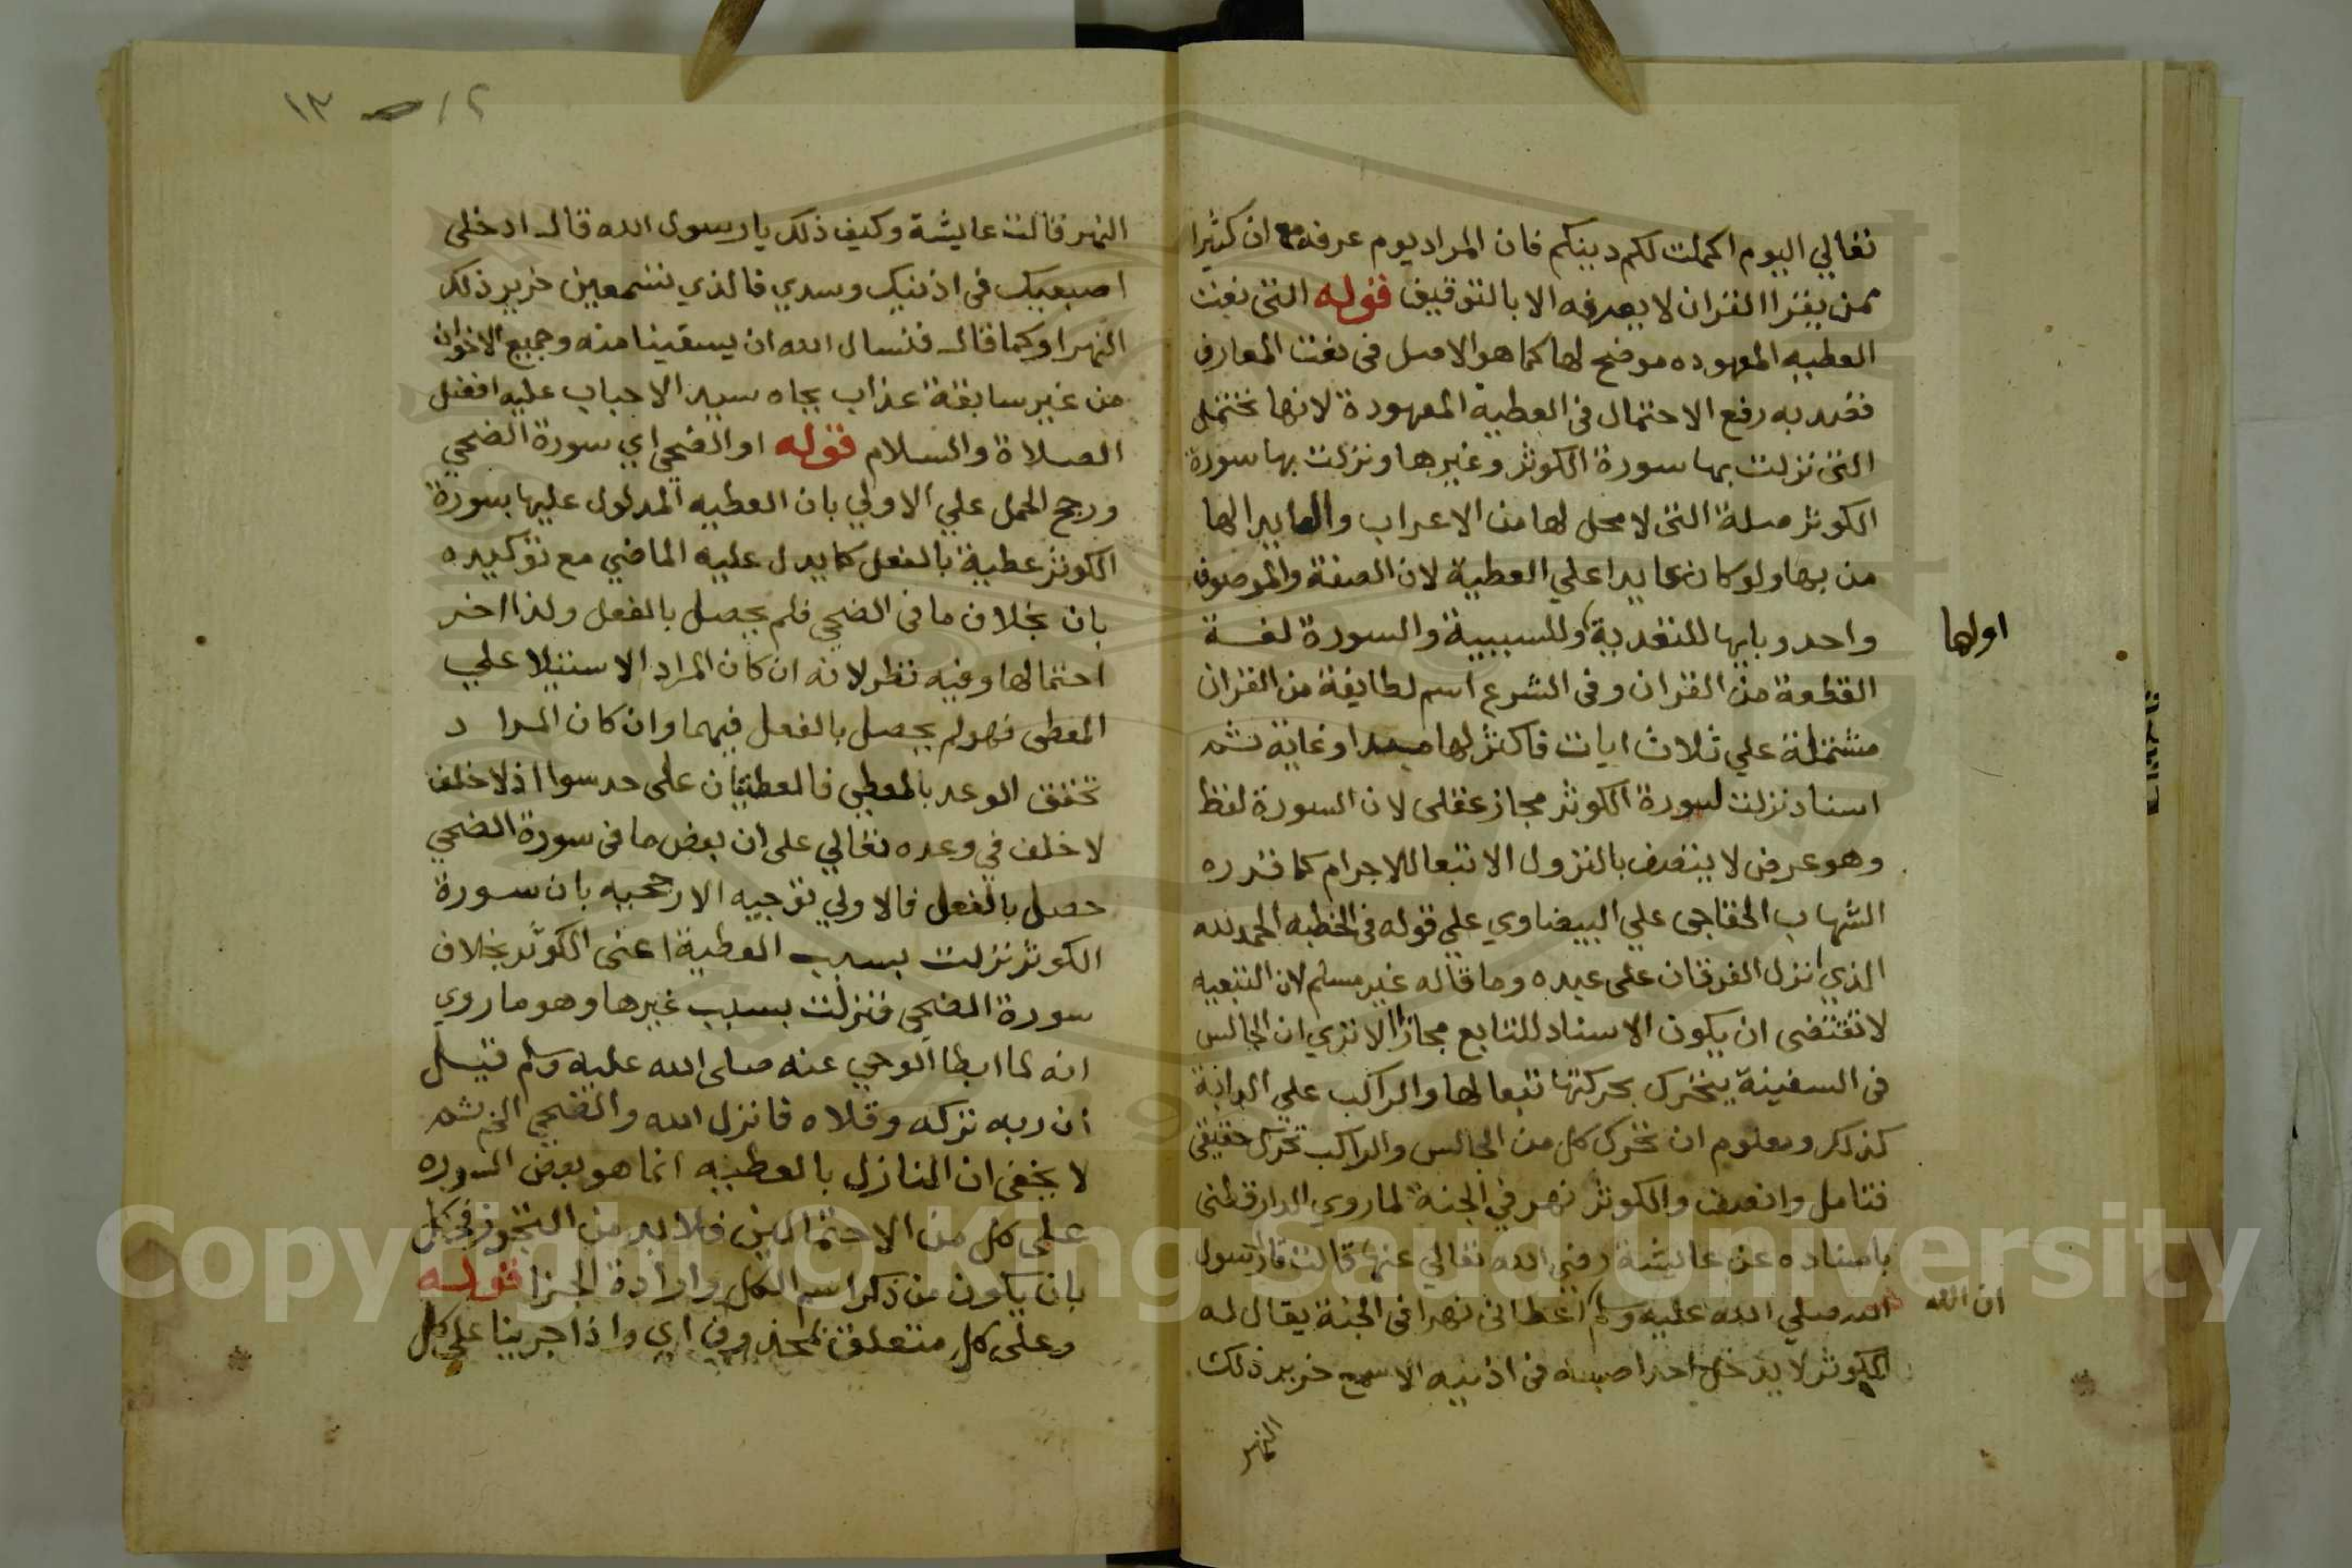 تعالي اليوم اكملت لكم دينكم فان المراد يوم عرفة مع ان كثيرا
ممن يقرا القران لا يعرفه الا بالتوقيف قوله التي نعت
العطيه المعهوده موضح لها كما هو الاصل في نعت المعارف
فقصد به رفع الاحتمال في العطية المعهودة لانها تحتمل
التي نزلت بها سورة الكوثر وغيرها ونزلت بها سورة
الكوثر صلة التي لا محل لها من الاعراب والعايد الها
من بها ولو كان عايدا علي العطية لان الصفة والموصوف
واحد وبايها للتعدية او للسببية والسورة لغة
اولها
القطعة من القران وفي الشرع اسم لطايفة من القران
مشتملة علي ثلاث ايات فاكثر لها مبدا وغاية ثم
اسناد نزلت لسورة الكوثر مجاز عقلي لان السورة لفظ
وهو عرض لا يتصف بالنزول الا تبعا للاجرام كما قرره
الشهاب الخفاجي علي البيضاوي علي قوله في الخطبه الحمد لله
الذي نزل الفرقان على عبده وما قاله غير مسلم لان التبعيه
لا تقتضي ان يكون الاسناد للتابع مجازا الا تري ان الجالس
في السفينة يتحرك بحركتها تبعا لها والراكب علي الدابة
كذلك ومعلوم ان تحرك كل من الجالس والراكب تحرك حقيقي
فتامل وانصف والكوثر نهر في الجنة لما روي الدارقطني
باسناده عن عايشة رضي الله تعالي عنها قالت قال رسول
الله صلي الله عليه وسلم اعطاني نهرا في الجنة يقال له
ان الله
الكوثر لا يدخل احد اصبعيه في اذنيه الا سمع خرير ذلك
النهر
١٢
١٣
النهر قالت عايشة وكيف ذلك يا رسول الله قال ادخلي
اصبعيك في اذنيك وسدي فالذي تسمعين خرير ذلك
النهر او كما قال فنسال الله ان يسقينا منه وجميع الاخوان
من غير سابقة عذاب بجاه سيد الاحباب عليه افضل
الصلاة والسلام قوله او الضحي اي سورة الضحي
ورجح الحمل علي الاولي بان العطيه المدلول عليها بسورة
الكوثر عطية بالفعل كما يدل عليه الماضي مع توكيده
بان بخلاف ما في الضحي فلم يحصل بالفعل ولذا اخر
احتمالها وفيه نظر لانه ان كان المراد الاستيلا علي
المعطى فهو لم يحصل بالفعل فيهما وان كان المراد
تحقق الوعد بالمعطي فالعطيتان على حد سوا اذ لا خلف
لا خلف في وعده تعالي على ان بعض ما في سورة الضحي
حصل بالفعل فالاولي توجيه الارجحيه بان سورة
الكوثر نزلت بسبب العطية اعني الكوثر بخلاف
سورة الضحي فنزلت بسبب غيرها وهو ما روي
انه لما ابطا الوحي عنه صلى الله عليه وسلم قيل
ان ربه تركه وقلاه فانزل الله والضحي الخ ثم
لا يخفى ان المنازل بالعطيه انما هو بعض السوره
على كل من الاحتمالين فلا بد من التجوز في كل
بان يكون من ذكر اسم الكل وارادة الجزا قوله
وعلى كل متعلق بمحذوف اي واذا جرينا علي كل